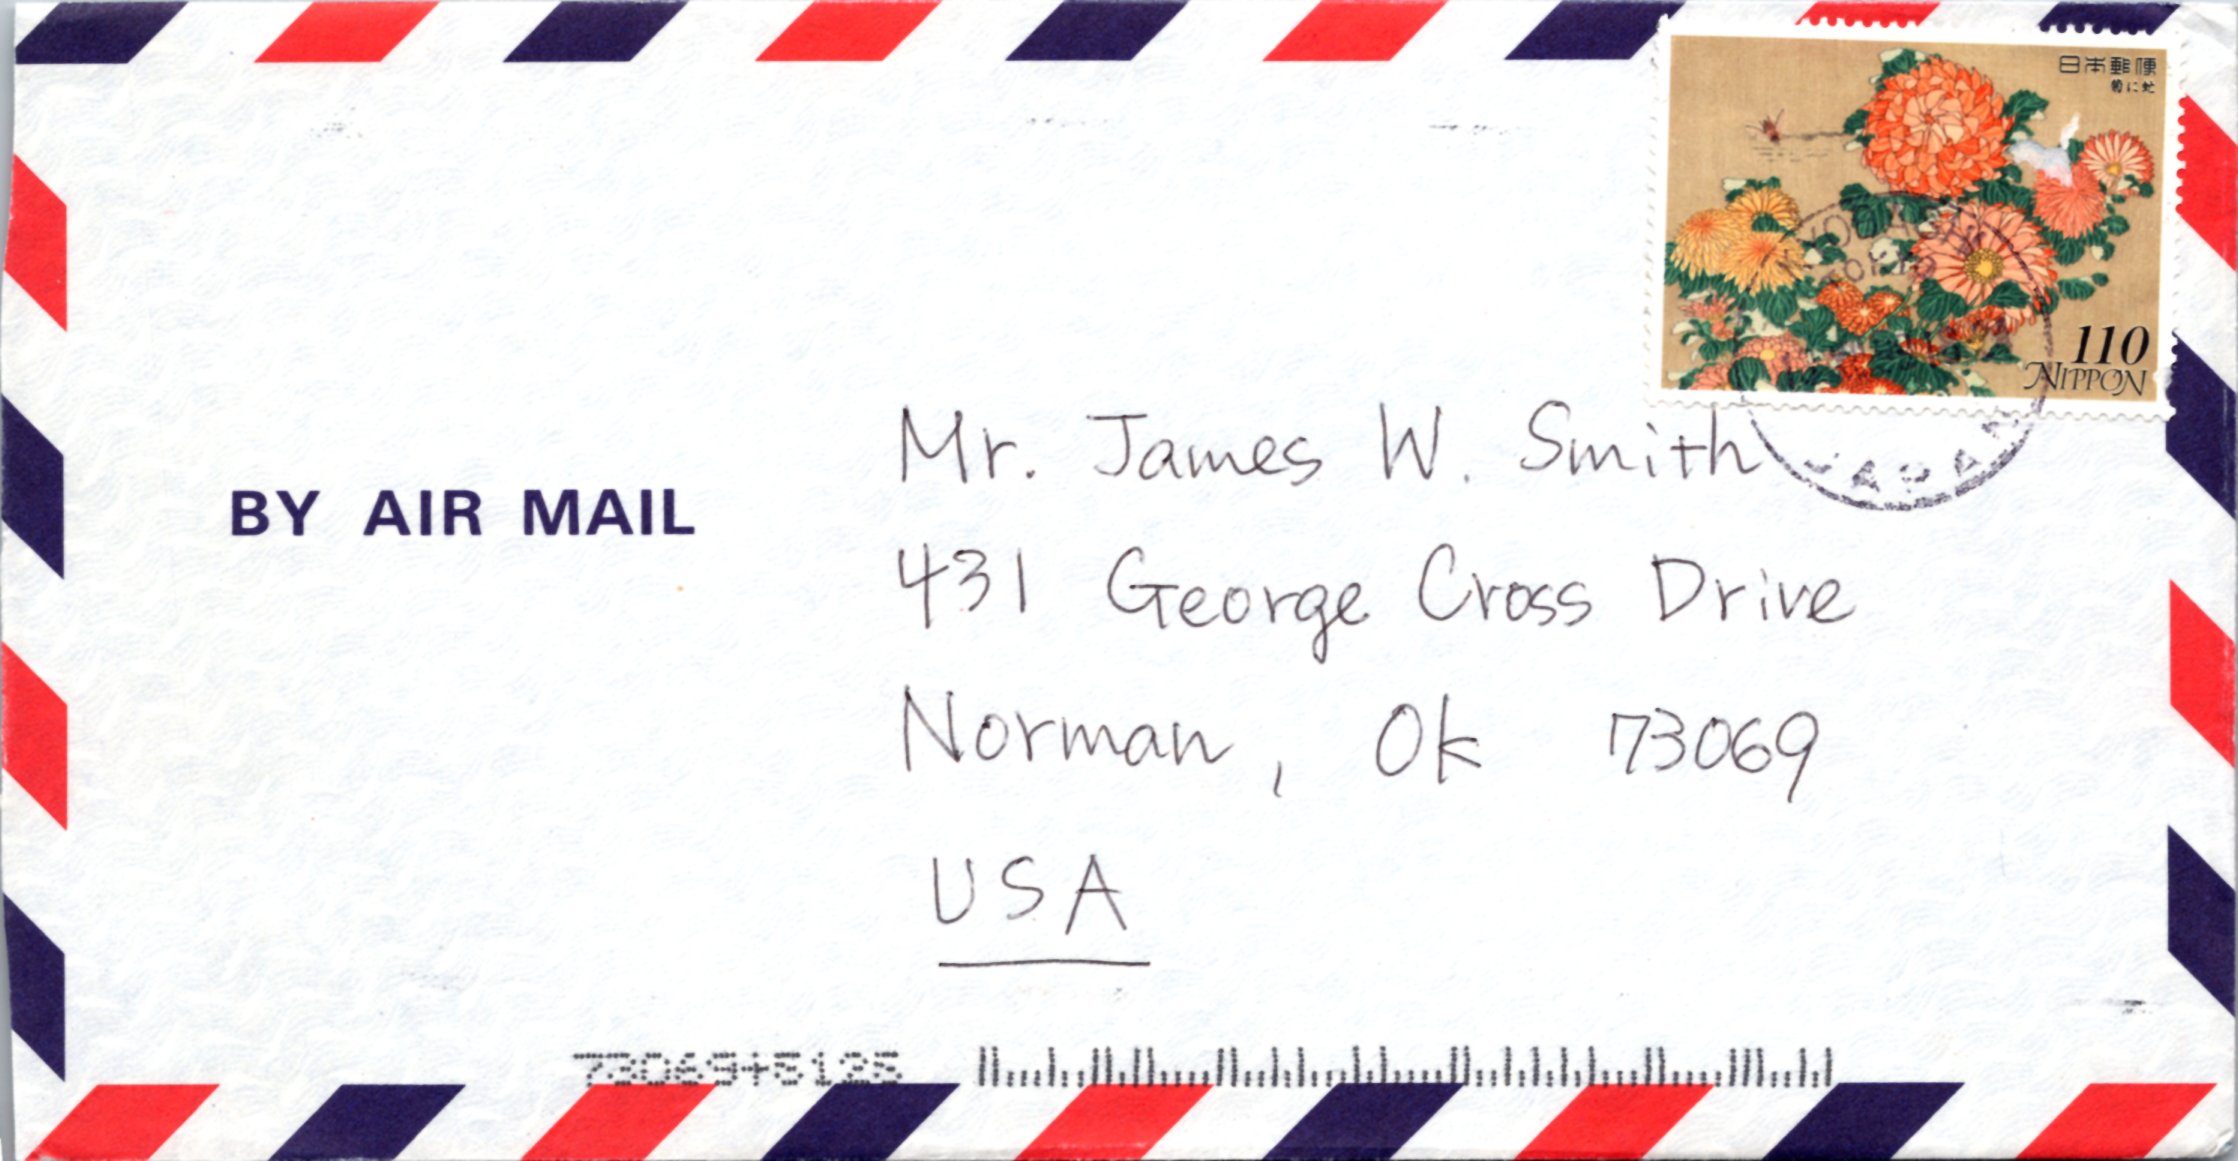 日本郵便
菊に虻
110
NIPPON
JAPAN
BY AIR MAIL
Mr. James W. Smith
431 George Cross Drive
Norman, Ok 73069
USA
73069+5125